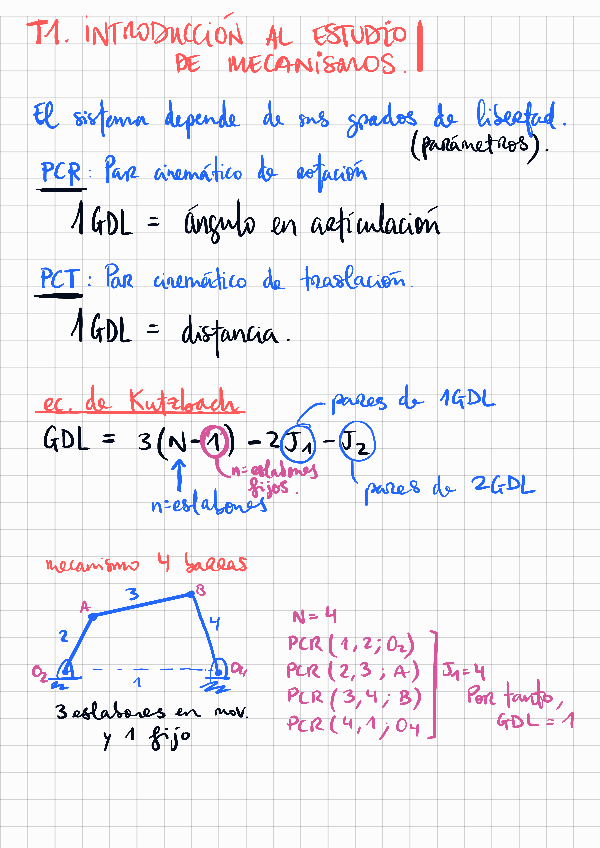 T1. INTRODUCCIÓN AL ESTUDIO
DE MECANISMOS.
El sistema depende de sus grados de libertad.
(parámetros).
PCR: Par cinemático de rotación
1GDL = ángulo en articulación
PCT: Par cinemático de traslación.
1GDL = distancia.
ec. de Kutzbach
pares de 1GDL
GDL = 3(N-1) - 2J₁ - J₂
n=eslabones
fijos.
n=eslabones
pares de 2GDL
mecanismo 4 barras
A
3
B
2
4
O₂
1
O₄
3 eslabones en mov.
y 1 fijo
N=4
PCR(1,2; O₂)
PCR(2,3; A)
PCR(3,4; B)
PCR(4,1; O4
J₁=4
Por tanto,
GDL = 1